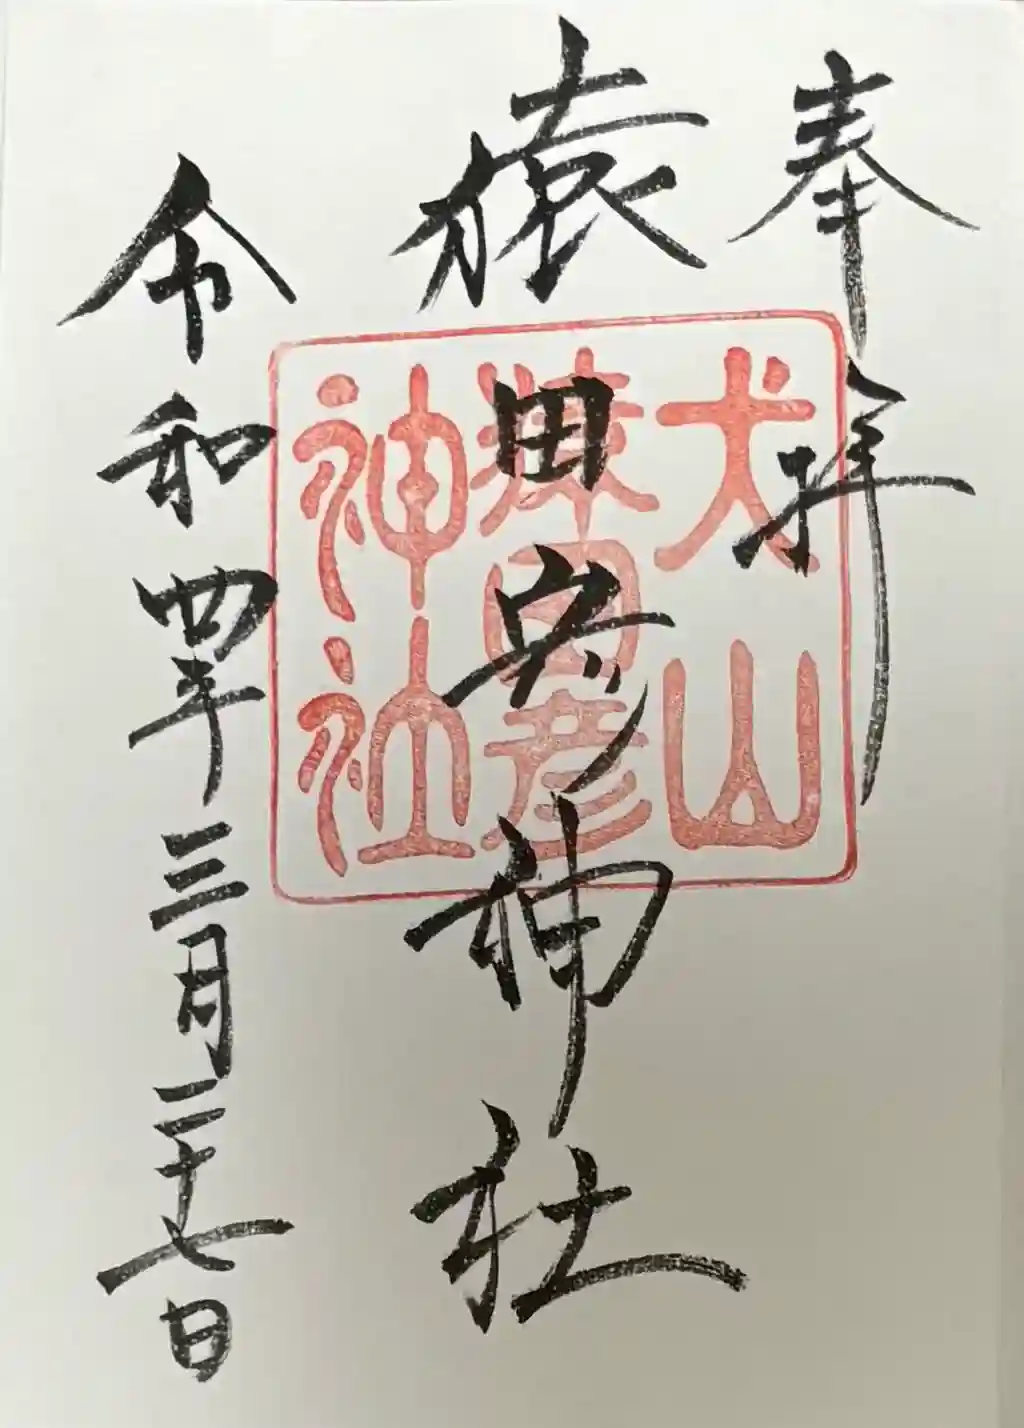 奉拝
猿田彦神社
犬山
猿田彦
神社
令和四年三月二十七日